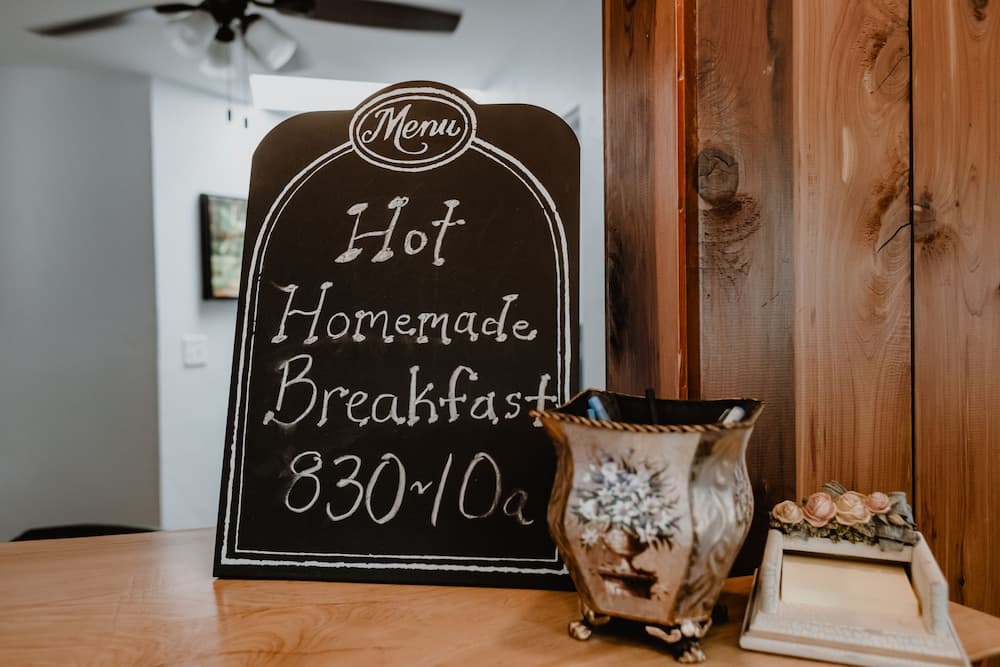 Menu
Hot
Homemade
Breakfast
830~10a